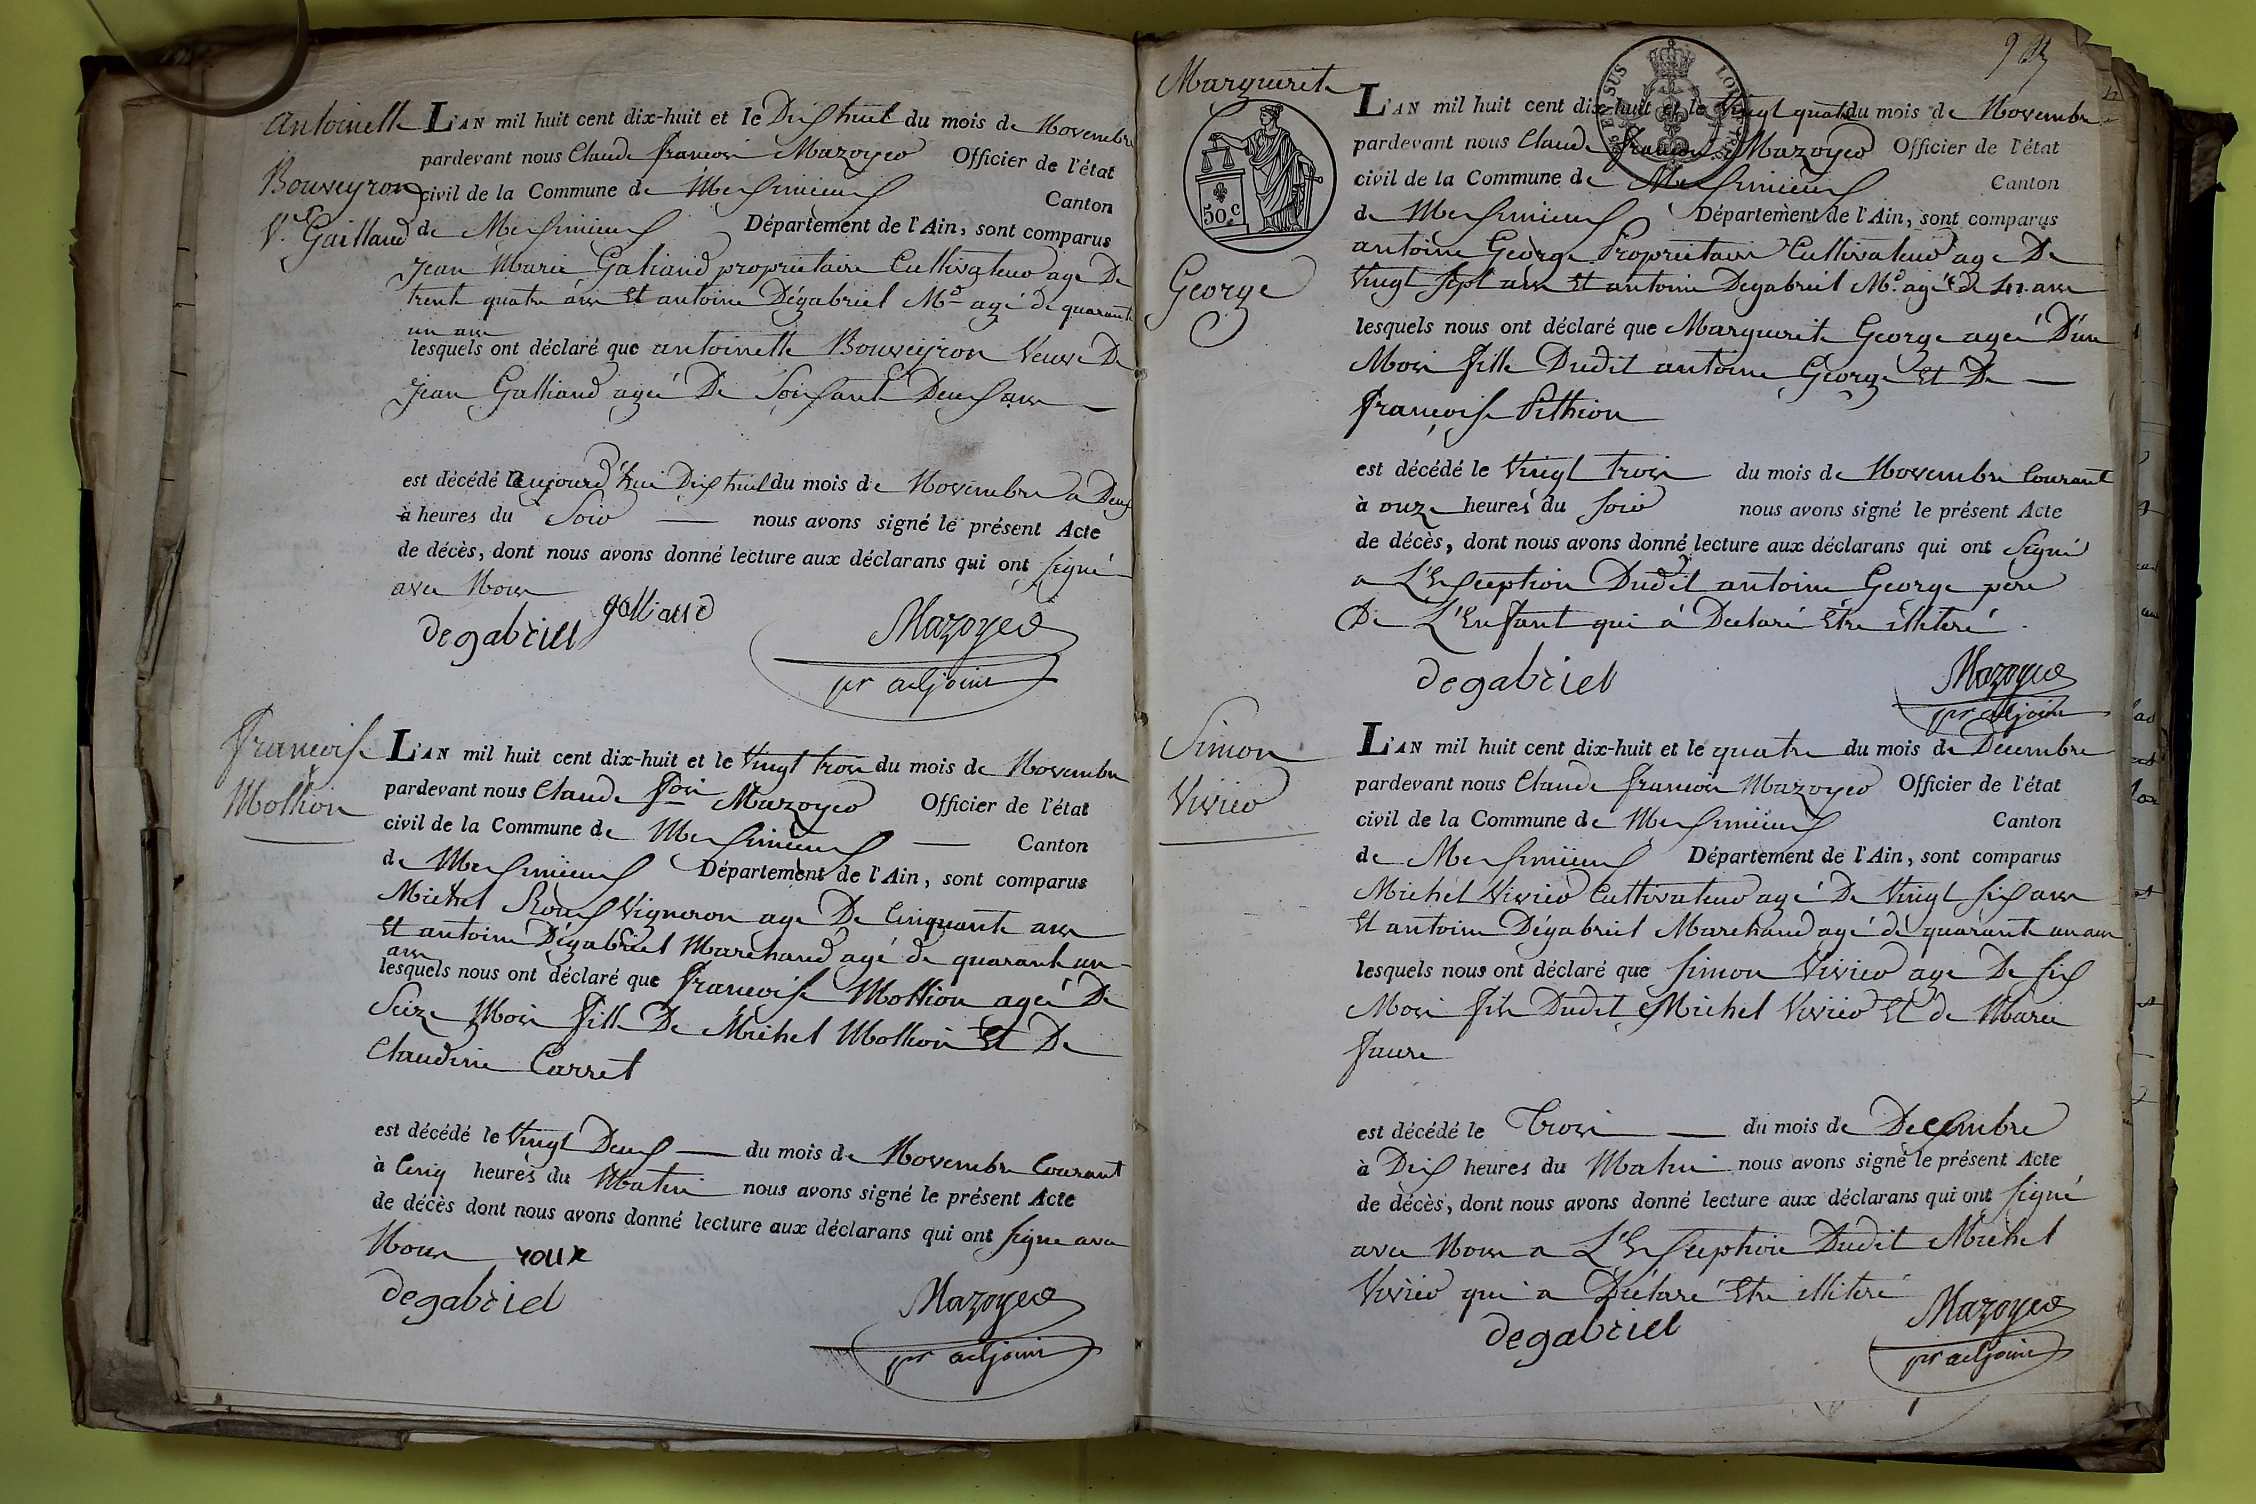 Antoinette
Bouveyron
Ve. Gailland
L'AN mil huit cent dix-huit et le Dix huit du mois de Novembre
pardevant nous Claude francois Mazoyer Officier de l'état
civil de la Commune de Meximieux Canton
de Meximieux Département de l'Ain, sont comparus
Jean Marie Galiand propriétaire Cultivateur agé De
trente quatre ans Et antoine Dégabriel Md agé de quarante
un ans
lesquels ont déclaré que antoinette Bouveyron Veuve De
Jean Galliand agée De Soixante Deux ans
est décédé aujourd'hui Dix huit du mois de Novembre a Deux
à heures du Soir nous avons signé le présent Acte
de décès, dont nous avons donné lecture aux déclarans qui ont signé
avec Nous
galliand
degabriel
Mazoyer
pr adjoint
francoise
Mollion
L'AN mil huit cent dix-huit et le Vingt trois du mois de Novembre
pardevant nous Claude fois Mazoyer Officier de l'état
civil de la Commune de Meximieux Canton
de Meximieux Département de l'Ain, sont comparus
Michel Roux Vigneron age De Cinquante ans
Et antoine Dégabriel Marchand agé de quarante un
ans
lesquels nous ont déclaré que francoise Mollion agée De
Seize Mois fille De Michel Mollion Et De
Claudine Carret
est décédé le Vingt Deux du mois de Novembre Courant
à Cinq heures du Matin nous avons signé le présent Acte
de décès dont nous avons donné lecture aux déclarans qui ont signe avec
Nous roux
degabriel
Mazoyer
pr adjoint
Marguerite
50 c
George
L'AN mil huit cent dix-huit et le Vingt quatre du mois de Novembre
pardevant nous Claude francois Mazoyer Officier de l'état
civil de la Commune de Meximieux Canton
de Meximieux Département de l'Ain, sont comparus
antoine George Propriétaire Cultivateur age De
Vingt Sept ans Et antoine Degabriel Md. agé de 41 ans
lesquels nous ont déclaré que Marguerite George agée D'un
Mois fille Dudit antoine George Et De
françoise Pithion
est décédé le Vingt trois du mois de Novembre Courant
à onze heures du soir nous avons signé le présent Acte
de décès, dont nous avons donné lecture aux déclarans qui ont Signé
a L'Exception Dudit antoine George pere
De L'Enfant qui á Declaré Etre illiteré
degabriel
Mazoyer
pr adjoint
Simon
Vivier
L'AN mil huit cent dix-huit et le quatre du mois de Decembre
pardevant nous Claude francois Mazoyer Officier de l'état
civil de la Commune de Meximieux Canton
de Meximieux Département de l'Ain, sont comparus
Michel Vivier Cultivateur agé De Vingt six ans
Et antoine Dégabriel Marchand agé de quarante un ans
lesquels nous ont déclaré que Simon Vivier age De six
Mois fils Dudit Michel Vivier Et de Marie
faure
est décédé le Trois du mois de Decembre
à Dix heures du Matin nous avons signé le présent Acte
de décès, dont nous avons donné lecture aux déclarans qui ont signé
avec Nous a L'Exception Dudit Michel
Vivier qui a Déclaré Etre illiteré
degabriel
Mazoyer
pr adjoint